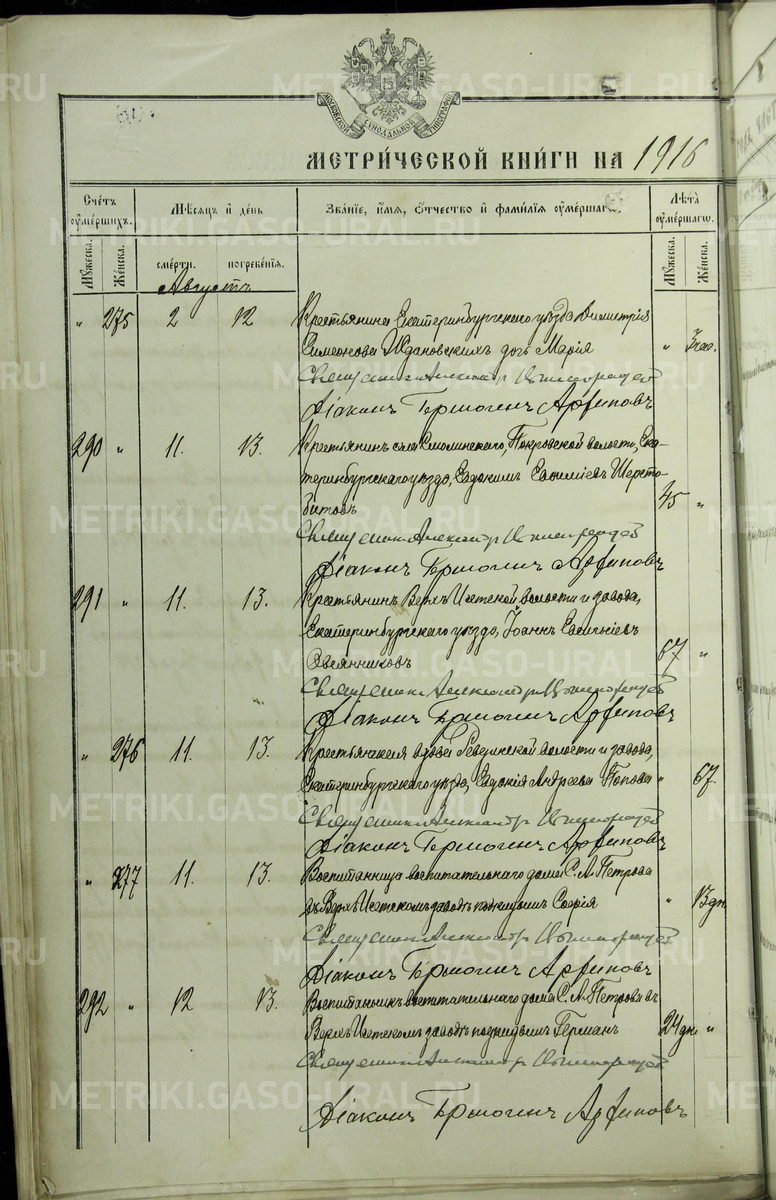 МОСКОВСКОЙ СѴНОДАЛЬНОЙ ТИПОГРАФІИ
МЕТРИЧЕСКОЙ КНИГИ НА 1916
Счетъ умершихъ. Мѣсяцъ и день Званіе, имя, отчество и фамилія умершаго. Лѣта умершаго.
Мужеска. Женска. смерти. погребенія. Мужеска. Женска.
Августъ
" 275 2 12 Крестьянина Екатеринбургскаго уѣзда Димитрія
Симеонова Ждановскихъ дочь Марія " 3 час.
Священникъ Александръ
Діаконъ Ермогенъ Архиповъ
290 " 11. 13. Крестьянинъ села Смолинскаго, Покровской волости, Ека-
теринбургскаго уѣзда, Евдокимъ Евѳиміевъ Шерсто-
битовъ 45 "
Священникъ Александръ
Діаконъ Ермогенъ Архиповъ
291 " 11. 13. Крестьянинъ Верхъ Исетской волости и завода,
Екатеринбургскаго уѣзда, Іоаннъ Евгеніевъ
Овсянниковъ 67 "
Священникъ Александръ
Діаконъ Ермогенъ Архиповъ
" 276 11. 13. Крестьянская вдова Ревдинской волости и завода,
Екатеринбургскаго уѣзда, Евдокія Андреева Попова " 67.
Священникъ Александръ
Діаконъ Ермогенъ Архиповъ
" 277 11. 13. Воспитанница воспитательнаго дома С. А. Петрова
въ Верхъ Исетскомъ заводѣ подкидышъ Софія " 13 дн.
Священникъ Александръ
Діаконъ Ермогенъ Архиповъ
292 " 12 13. Воспитанникъ воспитательнаго дома С. А. Петрова въ
Верхъ Исетскомъ заводѣ подкидышъ Германъ 24 дн. "
Священникъ Александръ
Діаконъ Ермогенъ Архиповъ
METRIKI.GASO-URAL.RU